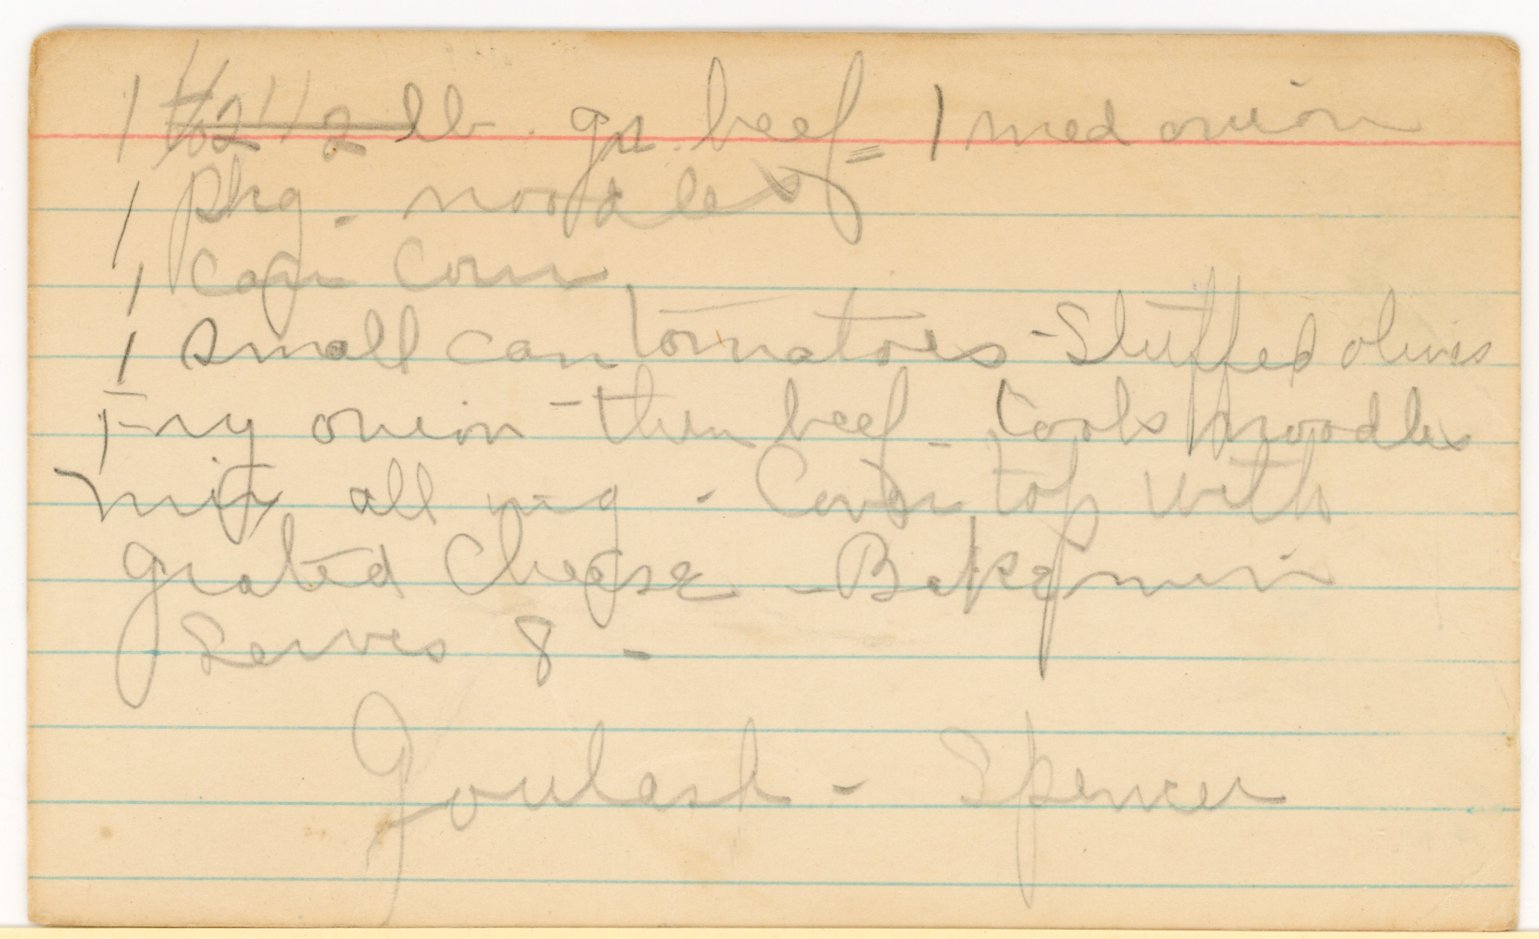 1 lb. gr. beef = 1 med onion
1 pkg - noodles
1 can Corn
1 small can tomatoes - Stuffed olives
Fry onion - then beef - Cook noodles
mix all ing - Cover top with
grated Cheese - Bake min
Serves 8 -
Goulash - Spencer